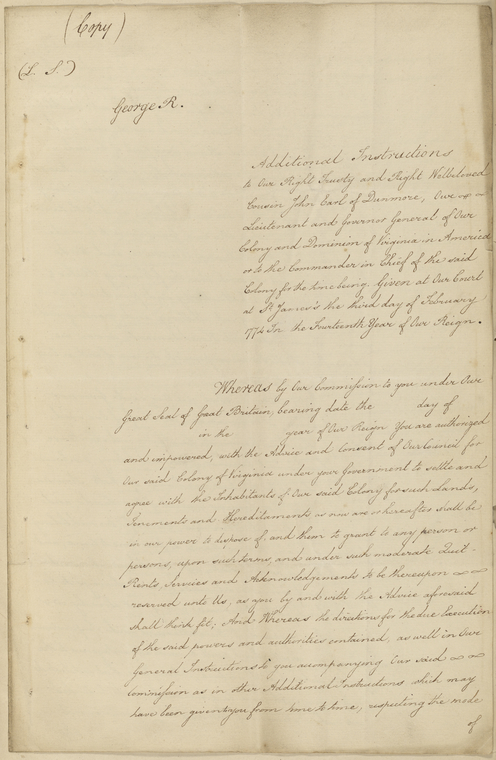 (Copy)
(L. S.)
George R.
Additional Instructions
to Our Right Trusty and Right Welbeloved
Cousin John Earl of Dunmore, Our
Lieutenant and Governor General of Our
Colony and Dominion of Virginia in America
or to the Commander in Chief of the said
Colony for the time being. Given at Our Court
at St James's the third day of February
1774 In the Fourteenth Year of Our Reign.
Whereas by Our Commission to you under Our
Great Seal of Great Britain, bearing date the day of
in the year of Our Reign You are authorized
and empowered, with the Advice and Consent of Our Council for
Our said Colony of Virginia under your Government to settle and
agree with the Inhabitants of Our said Colony for such Lands,
Tenements and Hereditaments as now are or hereafter shall be
in our power to dispose of, and them to grant to any person or
persons, upon such terms, and under such moderate Quit-
Rents, Services and Acknowledgements to be thereupon
reserved unto Us, as you by and with the Advice aforesaid
shall think fit; And Whereas the directions for the due Execution
of the said powers and authorities contained, as well in Our
General Instructions to you accompanying Our said
Commission as in other Additional Instructions which may
have been given to you from time to time, respecting the mode
of